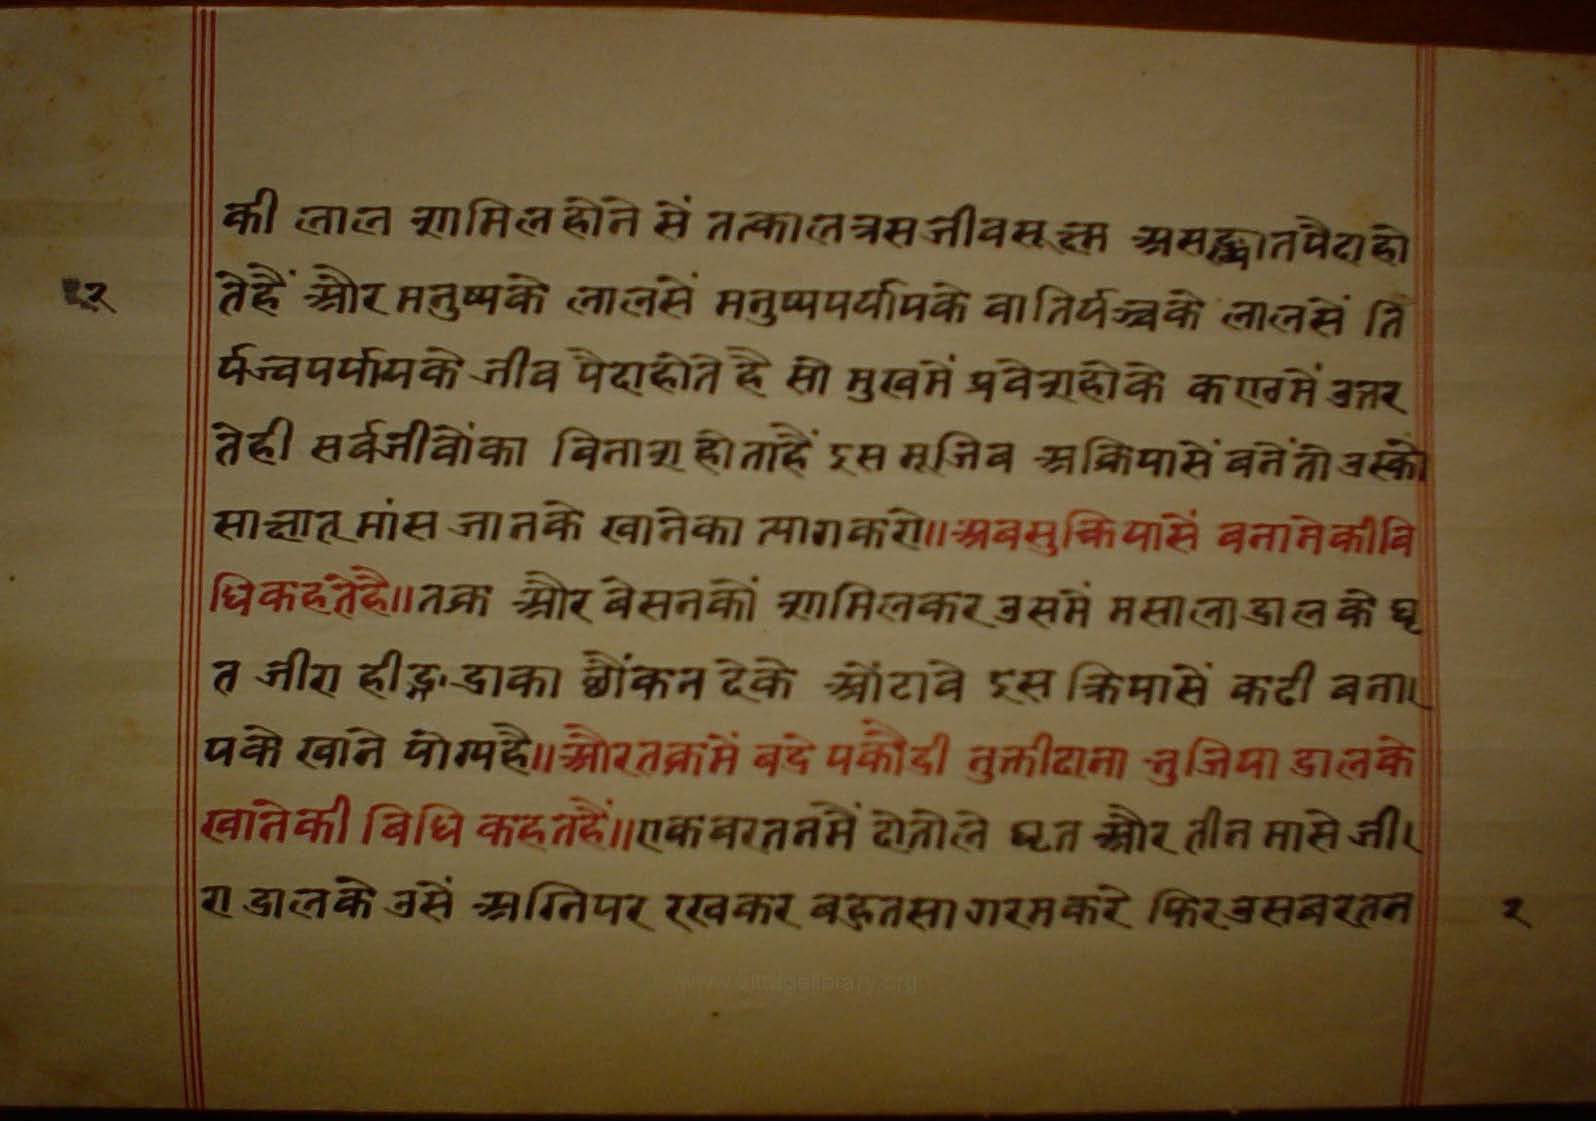 की लाल शामिल होने सें तत्काल त्रस जीव सूक्ष्म असङ्ख्यात पैदा हो
२ तेहैं और मनुष्यके लालसें मनुष्यपर्यायके वा तिर्यञ्चके लालसें ति
र्यञ्चपर्यायके जीव पैदाहोते है सो मुखमें प्रवेशहोके कण्ठमें उत्तर
तेही सर्वजीवोंका विनाश होताहैं इस मूजिब अक्रियासें बनें तो उस्को
साक्षात् मांस जानके खानेका त्याग करो॥ अब सुक्रियासें बनानेकी वि
धि कहतेहै॥ तक्र और बेसनकों शामिलकर उसमें मसाला डालके घृ
त जीरा हीङ्ग डाका छौंकन देके ओंटावे इस क्रियासें कढी बना।
यके खाने योग्यहै॥ और तक्रमें बडे पकौडी नुक्तीदाना भुजिया डालके
खानेकी विधि कहतेहैं॥ एक बरतनमें दोतोले घृत और तीन मासे जी।
रा डालके उसें अग्निपर रखकर बहुतसा गरम करे फिर उस बरतन २
www.jattagelibrary.org